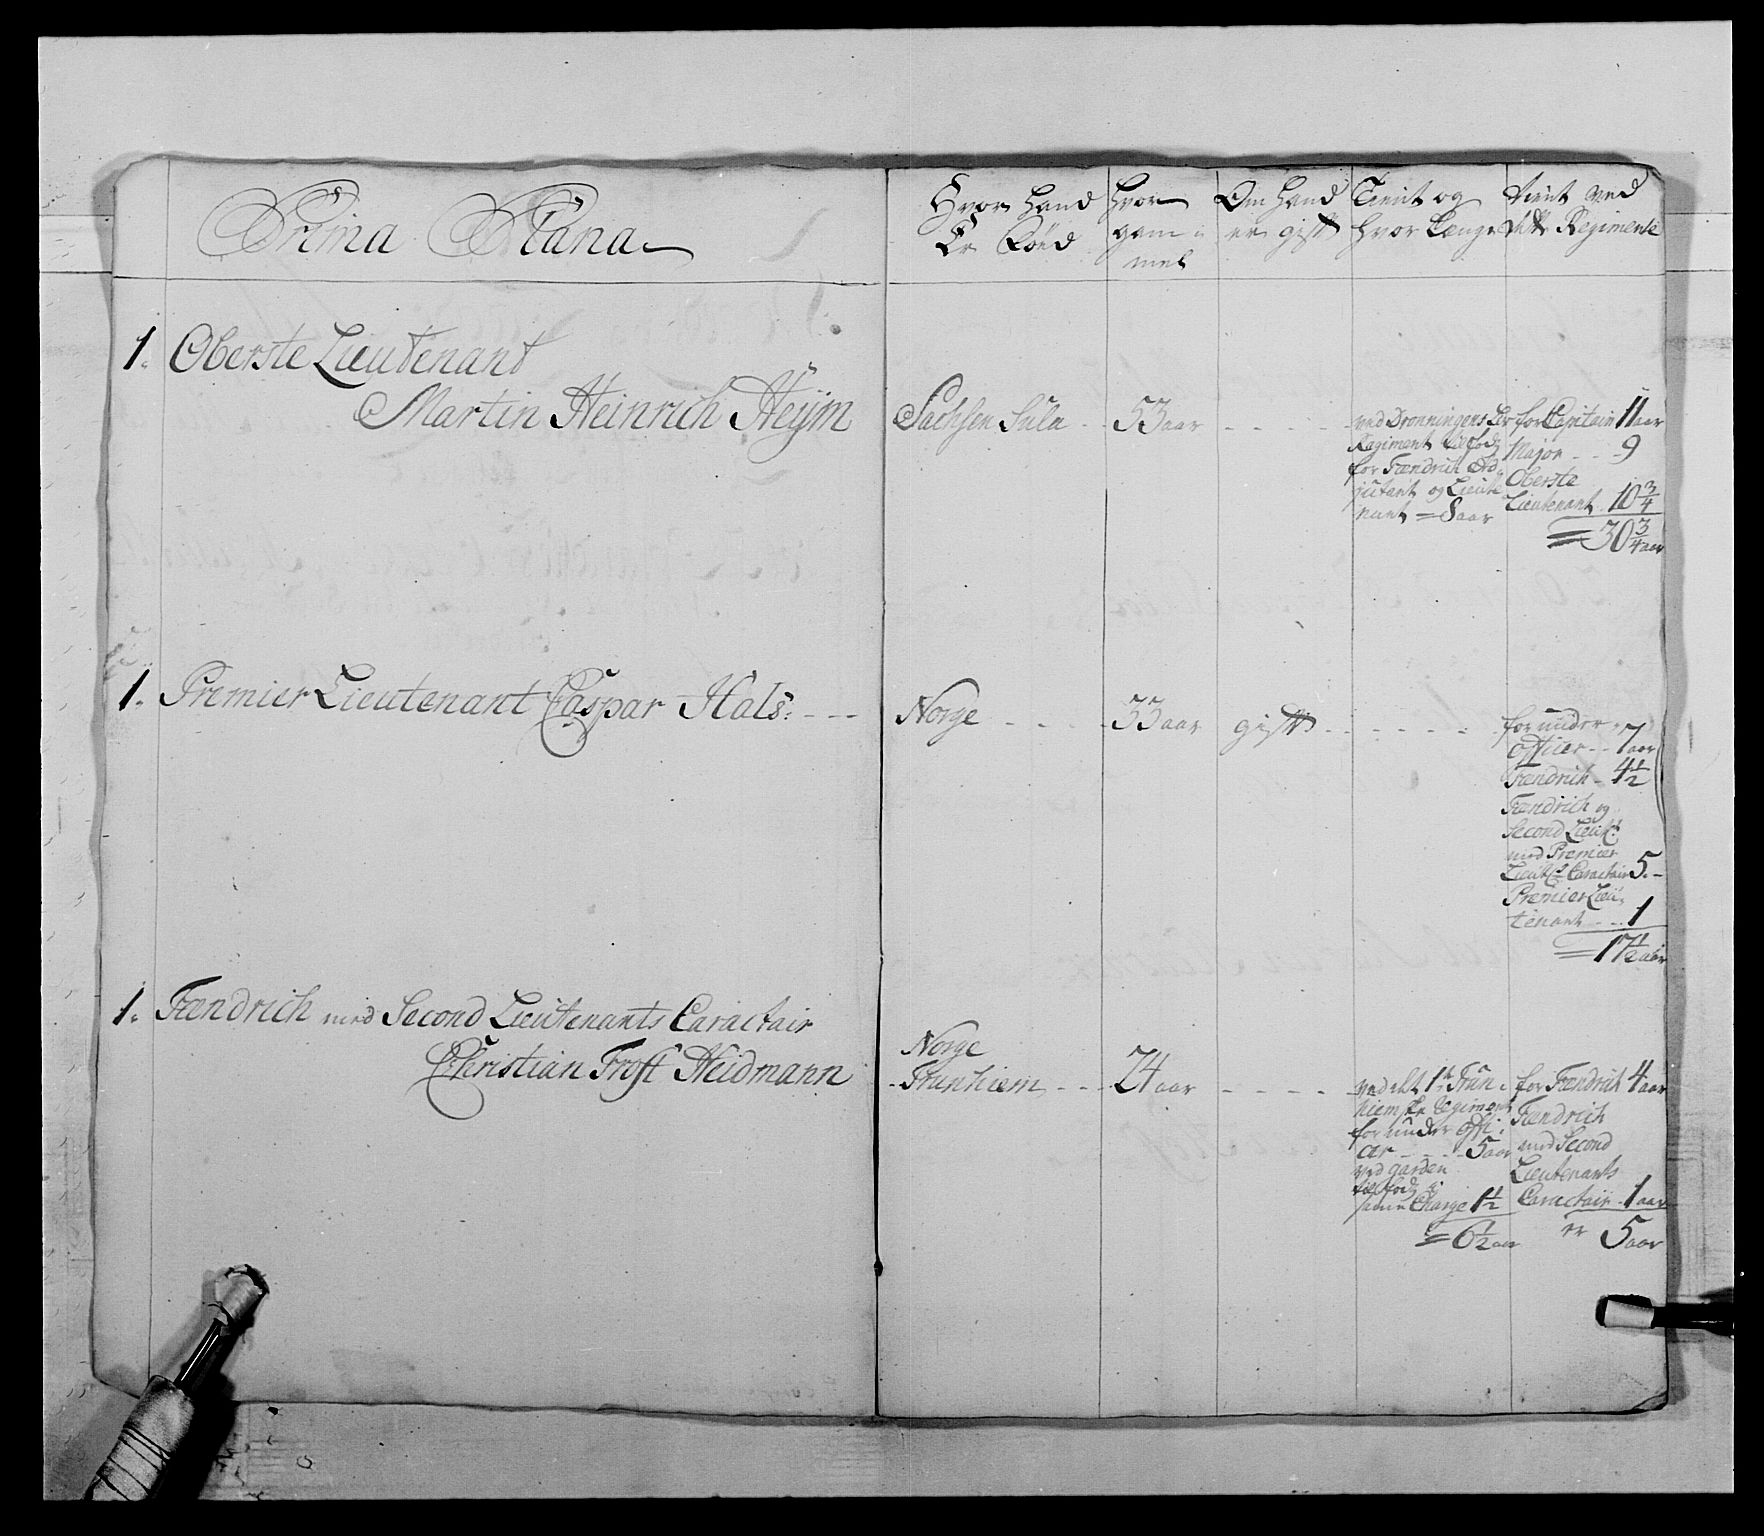 Prima Plana
Hvor hand
Er Föed
hvor
gam-
mel
Om hand
er gift
Tient og
hvor Længe
Tient ved
Regimente
1. Oberste Lieutenant
Martin Heinrich Heÿm
Sachsen Sula
53 aar
ved Dronningens Liv
Regiment til fods
for Fændrich Ad-
jutant og Lieute-
nant = 8 aar
for Capitain 11 aar
Major 9
Oberste
Lieutenant 10 3/4
= 30 3/4 aar
1. Premier Lieutenant Caspar Hals:
Norge
33 aar
gift
for under-
officer 7 aar
Fændrich 4 1/2
Fændrich og
Second Lieut:
med Premier
Lieut: Caractair 5.-
Premier Lieu-
tenant 1
= 17 1/2 aar
1. Fændrich med Second Lieutenants Caractair
Christian Frost Heidmann
Norge
Trunhiem
24 aar
ved det 1te Trun-
hiemske Regiment
for under offi-
cer 5 aar
ved garden
til fods i
samme Charge 1 1/2
= 6 1/2 aar
for Fændrich 4 aar
Fændrich
med Second
Lieutenants
Caractair 1 aar
er 5 aar